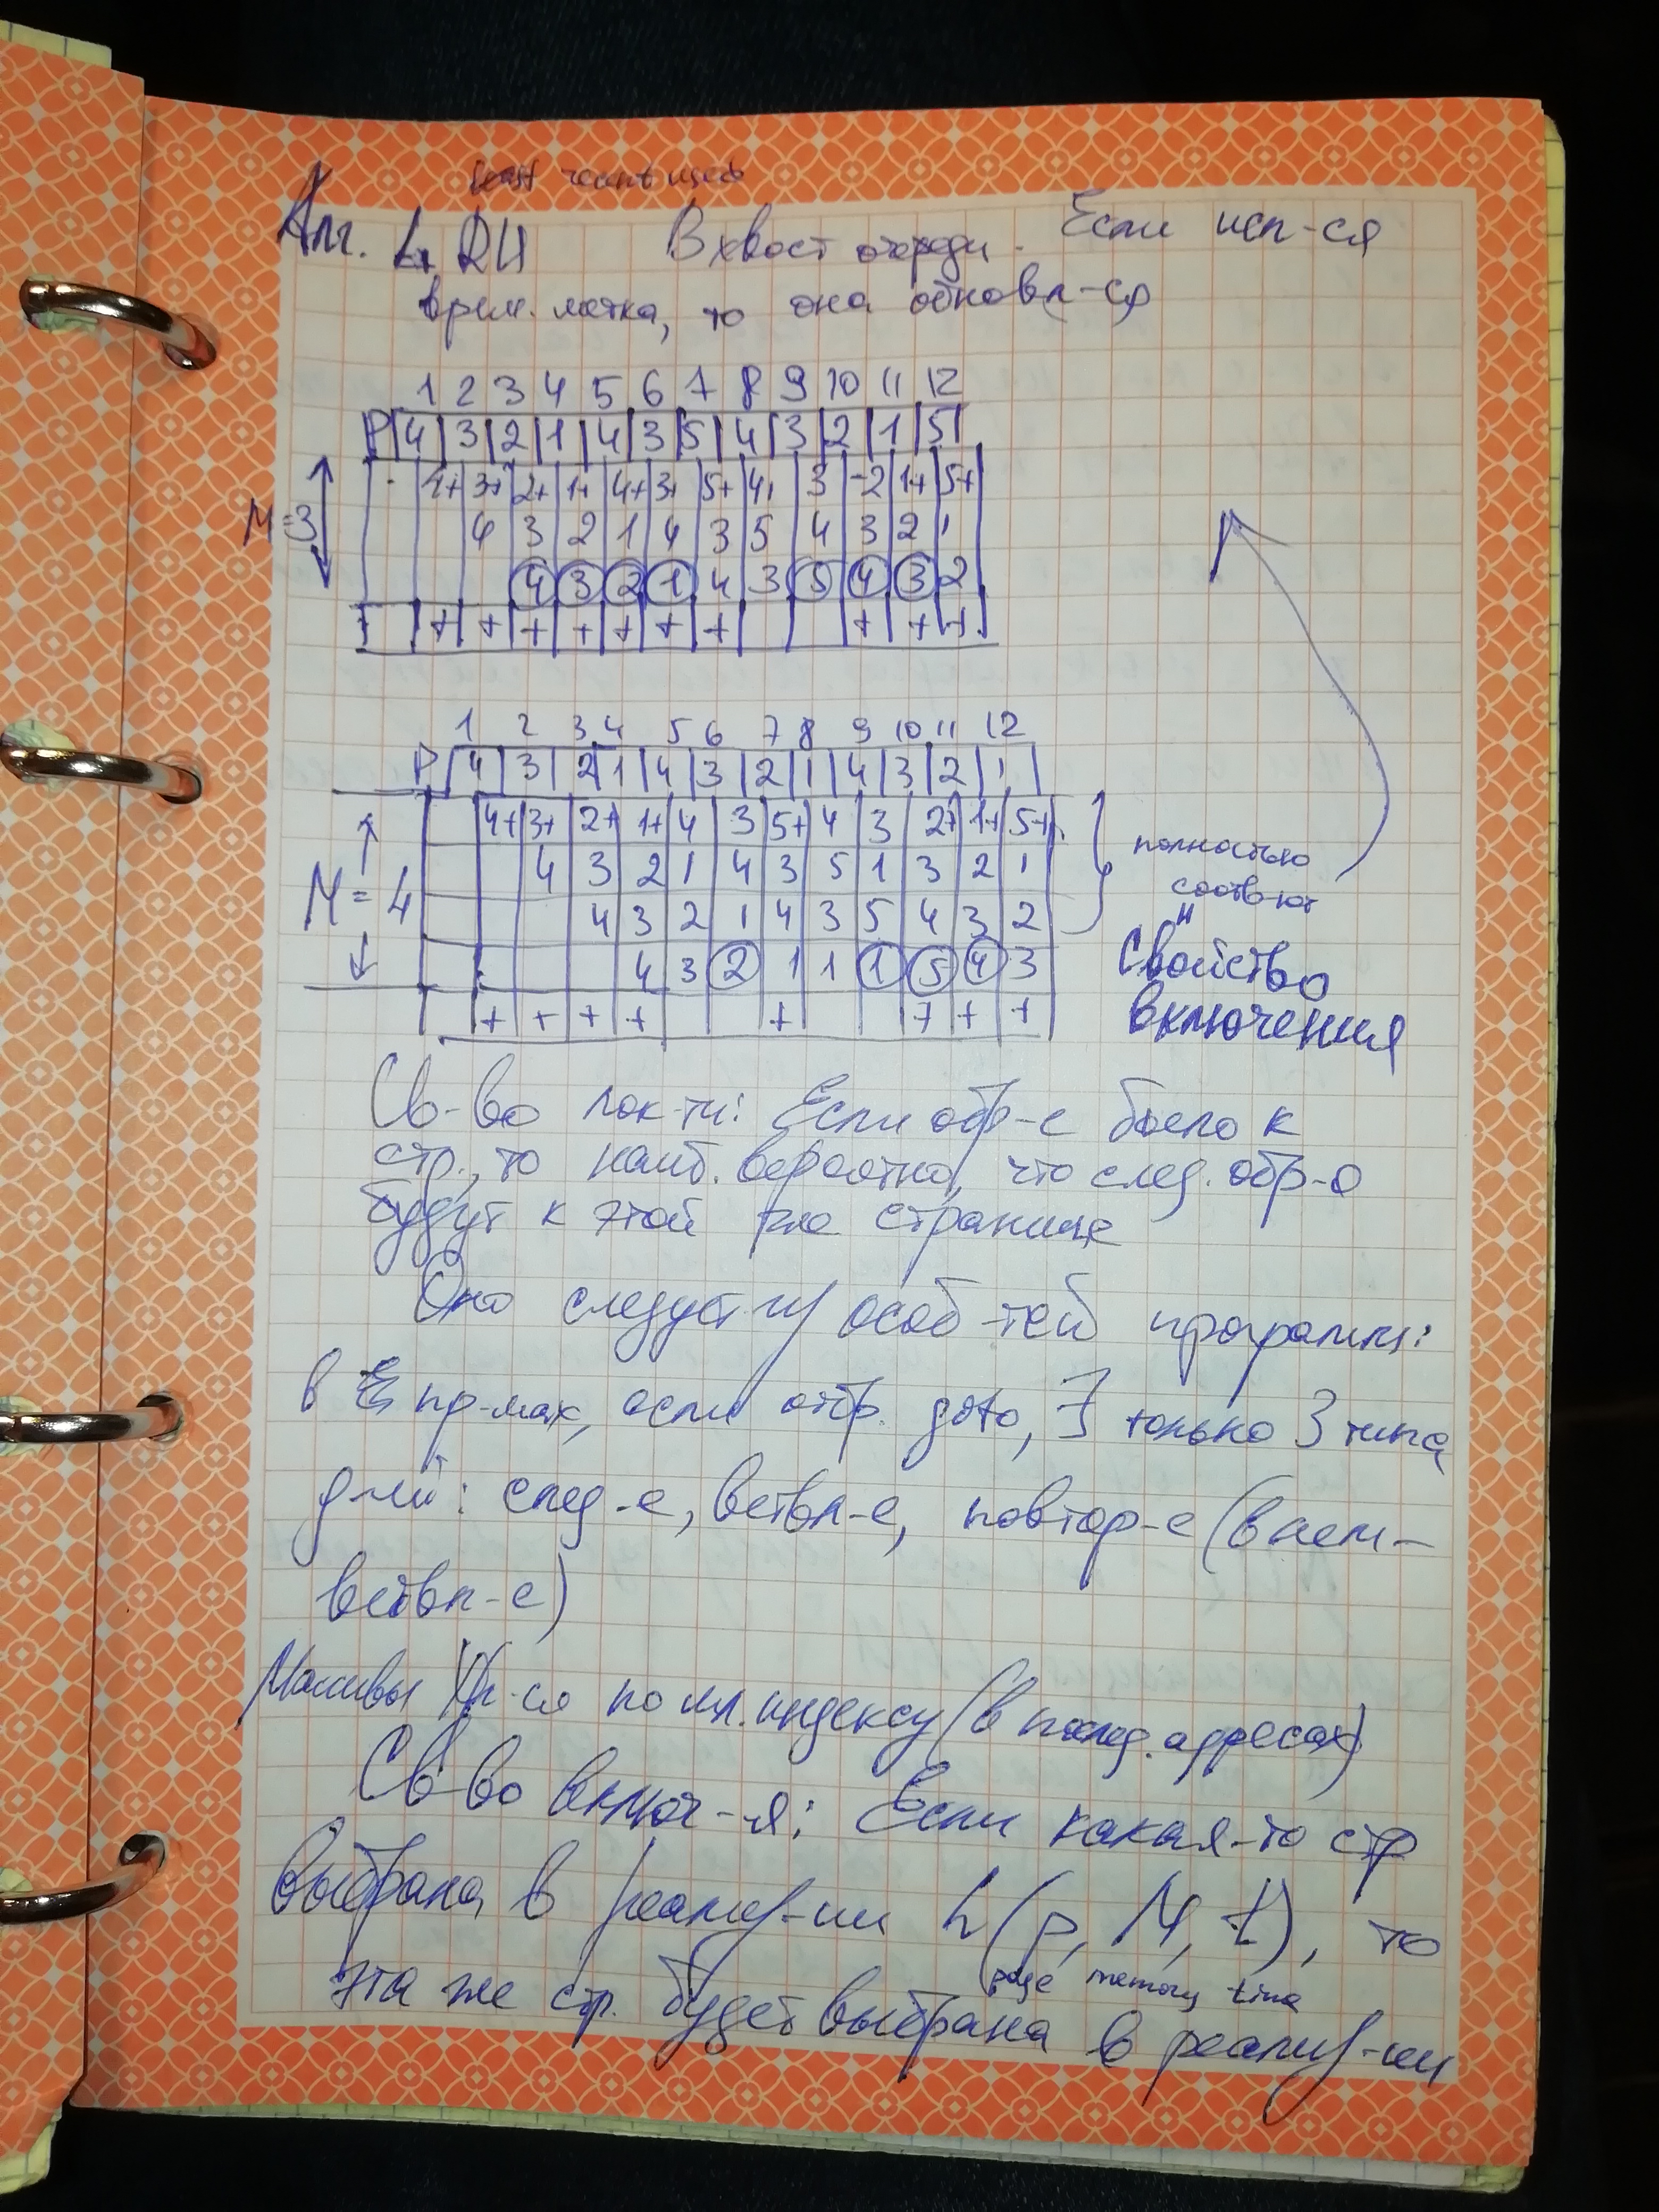 least recent used
Алг. LRU В хвост очереди. Если исп-ся
врем. метка, то она обновл-ся
1 2 3 4 5 6 7 8 9 10 11 12
P 4 3 2 1 4 3 5 4 3 2 1 5
4+ 3+ 2+ 1+ 4+ 3+ 5+ 4+ 3 2 1+ 5+
M=3 4 3 2 1 4 3 5 4 3 2 1
4 3 2 1 4 3 5 4 3 2
+ + + + + + + + + +
1 2 3 4 5 6 7 8 9 10 11 12
P 4 3 2 1 4 3 2 1 4 3 2 1
4+ 3+ 2+ 1+ 4 3 5+ 4 3 2+ 1+ 5+
4 3 2 1 4 3 5 1 3 2 1 полностью
M=4 4 3 2 1 4 3 5 4 3 2 соотв-ют
4 3 2 1 1 1 5 4 3 "Свойство
+ + + + + + + + включения
Св-во лок-ти: Если обр-е было к
стр., то наиб. вероятно, что след. обр-е
будут к этой же странице
Оно следует из особ-тей программ:
в пр-мах, если отбр. goto, ∃ только 3 типа
д-ий: след-е, ветвл-е, повтор-е (в нем-
ветвл-е)
Массивы хр-ся по мл. индексу (в послед. адресах)
Св-во включ-я: Если какая-то стр
выбрана в реализ-ии h(p, M, t), то
page memory time
эта же стр. будет выбрана в реализ-ии